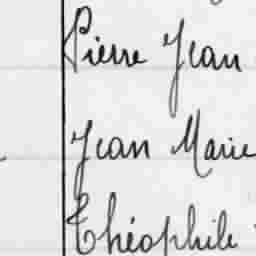 Pierre Jean
Jean Marie
Théophile